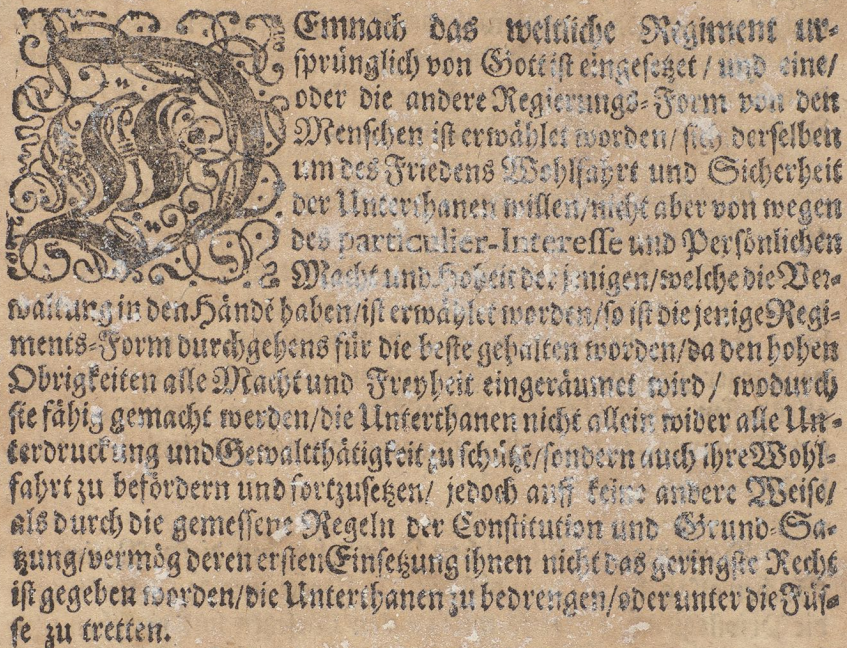 DEmnach das weltliche Regiment ur-
sprünglich von Gott ist eingesetzet / und eine/
oder die andere Regierungs-Form von den
Menschen ist erwählet worden/ sich derselben
um des Friedens Wohlfahrt und Sicherheit
der Unterthanen willen/nicht aber von wegen
des particulier-Interesse und Persönlichen
Macht und Hoheit derjenigen/welche die Ver-
waltung in den Händē haben/ist erwählet worden/so ist die jenige Regi-
ments-Form durchgehens für die beste gehalten worden/da den hohen
Obrigkeiten alle Macht und Freyheit eingeräumet wird/ wodurch
sie fähig gemacht werden/die Unterthanen nicht allein wider alle Un-
terdruckung und Gewaltthätigkeit zu schützē/sondern auch ihre Wohl-
fahrt zu befördern und fortzusetzen/ jedoch auff keine andere Weise/
als durch die gemessene Regeln der Constitution und Grund-Sa-
tzung/vermög deren ersten Einsetzung ihnen nicht das geringste Recht
ist gegeben worden/die Unterthanen zu bedrengen/oder unter die Füs-
se zu tretten.